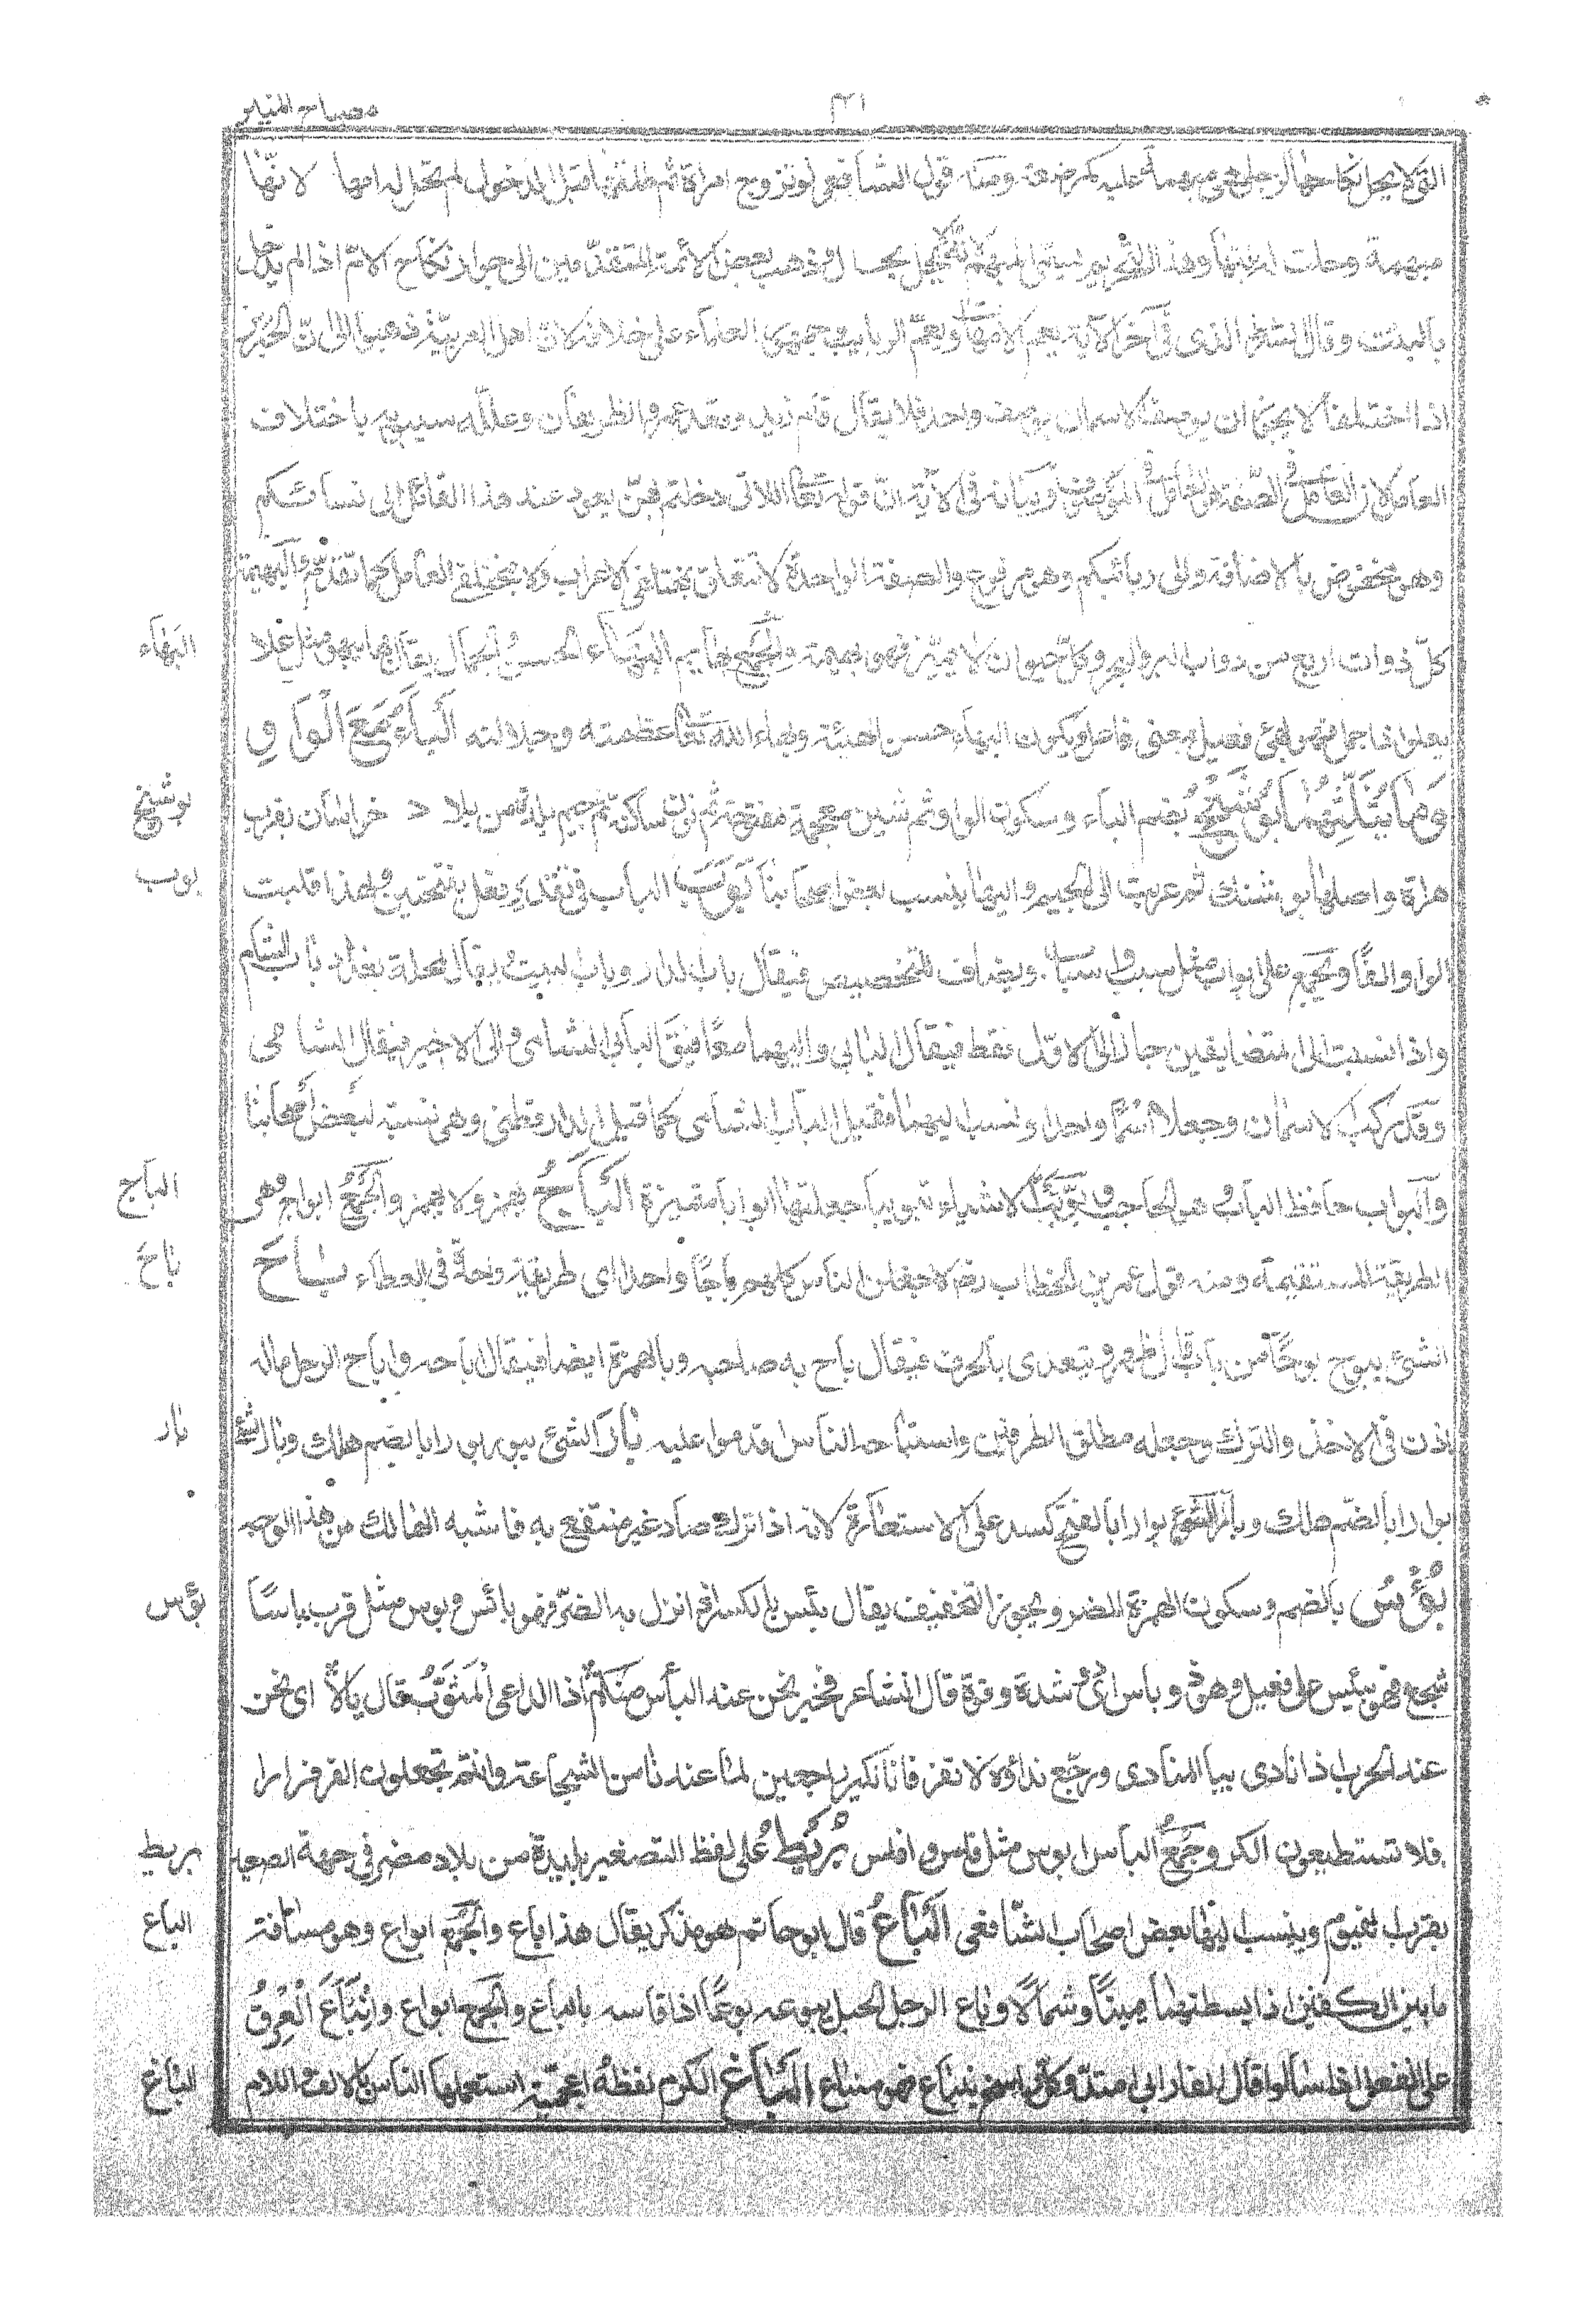 مصباح المنير
التى لا يحل نكاحها لرجل هى مبهمة عليه كمرضعته ومنه قول الشافعى لو تزوج امراة ثم طلقها قبل الدخول لم تحل له امها لانها
مبهمة وحلت له بنتها وهذا التحريم يسمى المبهم لانه لا يحل بحال وذهب بعض الائمة المتقدمين الى جواز نكاح الام اذا لم يدخل
بالبنت وقال الشرط الذى فى آخر الآية يعم الامهات ويعم الربايب وجمهور العلماء على خلافه لان اهل العربية ذهبوا الى ان الخبرين
اذا اختلفا لا يجوز ان يوصف الاسمان بوصف واحد فلا يقال قام زيد وقعد عمرو الظريفان وعلله سيبويه باختلاف
العامل لان العامل فى الصفة هو العامل فى الموصوف وبيانه فى الآية ان قوله تعالى اللاتى دخلتم بهن يعود عند هذا القائل الى نسائكم
وهو مخفوض بالاضافة والى ربائبكم وهو مرفوع والصفة الواحدة لا تتعلق بمختلفى الاعراب ولا بمختلفى العامل كما تقدم والبهيمة
كل ذوات اربع من دواب البر والبحر وكل حيوان لا يميز فهو بهيمة والجمع بهايم البهاء الحسن والجمال يقال بها يبهو مثل علا
البهاء
يعلو اذا جمل فهو بهى فعيل بمعنى فاعل ويكون البهاء حسن الهيئة وبهاء الله تعالى عظمته وجلالته الباء مع الواو
وما يثلثهما بوشنج بضم الباء وسكون الواو ثم شين معجمة مفتوحة ثم نون ساكنة ثم جيم بلدة من بلاد خراسان بقرب
بوشنج
هراة واصلها بوشنك ثم عربت الى الجيم واليها ينسب بعض اصحابنا بوب الباب فى تقدير فعل بفتحتين ولهذا قلبت
بوب
الواو الفا ويجمع على ابواب مثل سبب واسباب ويضاف للتخصيص فيقال باب الدار وباب البيت ويقال لمحلة ببغداد باب الشام
واذا نسبت الى المتضايفين جاز الى الاول فقط فيقال البابى واليهما معا فيقال البابى الشامى والى الاخير فيقال الشامى
وقد يركب الاسمان وجعلا اسما واحدا ونسب اليهما فقيل البابشامى كما قيل الدارقطنى وهى نسبة لبعض اصحابنا
والبواب حافظ الباب وهو الحاجب وبوبت الاشياء تبويبا جعلتها ابوابا متميزة الباج يهمز ولا يهمز والجمع ابواج وهى
الباج
الطريقة المستقيمة ومنه قول عمر بن الخطاب رضى لاجعلن الناس كلهم باجا واحدا اى طريقة واحدة فى العطاء باح
باح
الشئ يبوح بوحا من باب قال ظهر ويتعدى بالحرف فيقال باح به صاحبه وبالهمزة ايضا فيقال اباحه واباح الرجل ماله
اذن فى الاخذ والترك وجعله مطلق الطرفين واستباحه الناس اقدموا عليه بار الشئ يبور بورا بالضم هلك وبار الشئ
بار
بورا بالضم هلك وبار الشئ بوارا بالفتح كسد على الاستعارة لانه اذا ترك صار غير منتفع به فاشبه الهالك من هذا الوجه
بؤس بالضم وسكون الهمزة الضر ويجوز التخفيف يقال بئس بالكسر اذا نزل به الضر فهو بائس وبوس مثل قرب باسا
بؤس
شجع فهو بئيس على فعيل وهو ذو باس اى شدة وقوة قال الشاعر فخير نحن عند البأس منكم اذا الداعى المثوب قال يالا اى نحن
عند الحرب اذا نادى بنا المنادى ورجع نداؤه لا تفروا فانا نكر راجعين لما عندنا من الشجاعة وانتم تجعلون الفر فرارا
فلا تستطيعون الكر وجمع البأس ابوس مثل فلس وافلس بويط على لفظ التصغير بليدة من بلاد مصر فى جهة الصعيد
بويط
بقرب الفيوم وينسب اليها بعض اصحاب الشافعى الباع قال ابو حاتم هو مذكر يقال هذا باع والجمع ابواع وهو مسافة
الباع
ما بين الكفين اذا بسطتهما يمينا وشمالا وباع الرجل الحبل يبوعه بوعا اذا قاسه بالباع والجمع ابواع وانباع العرق
على انفعل اذا سال وقال الفارابى امتد وكل راسخ ينباع فهو منباع الباغ الكرم لفظه اعجمية استعملها الناس بالالف واللام
الباغ